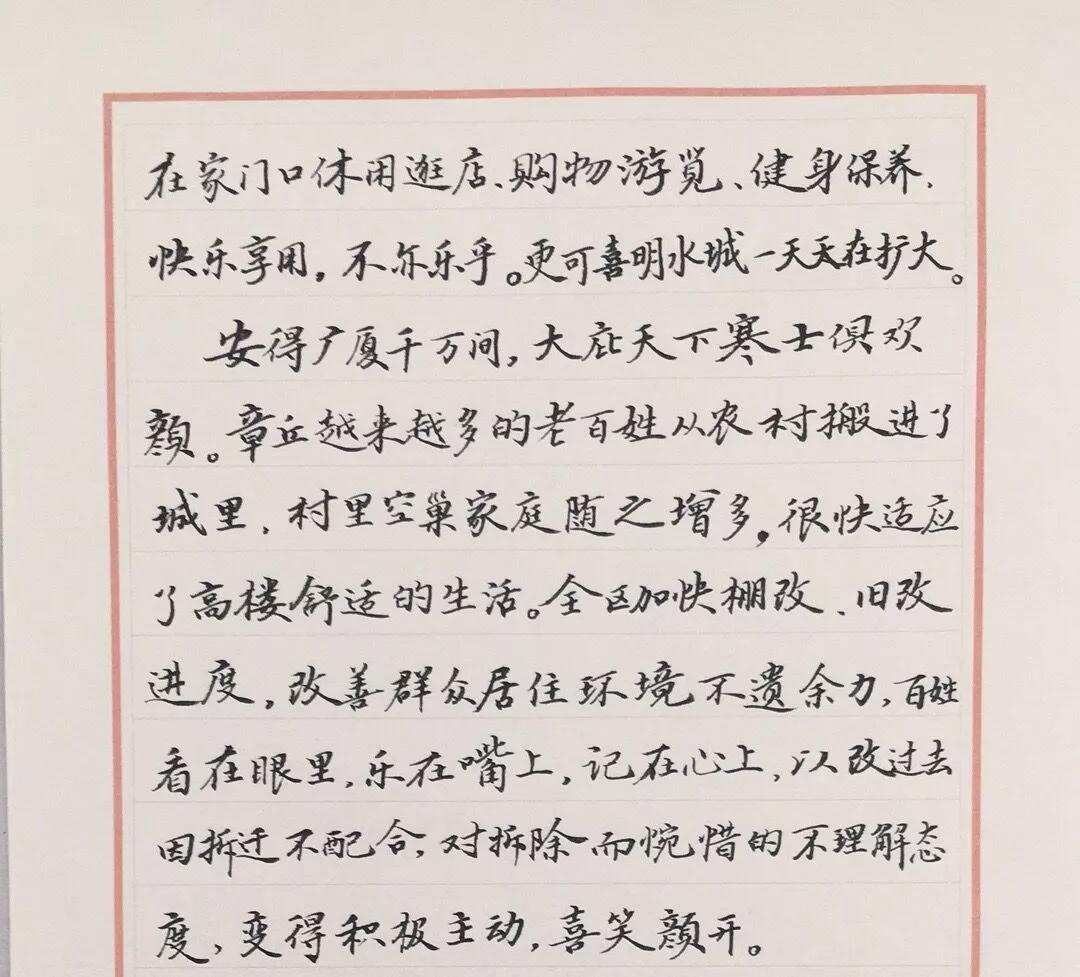 在家门口休闲逛店、购物游览、健身保养，
快乐享用，不亦乐乎。更可喜明水城一天天在扩大。
安得广厦千万间，大庇天下寒士俱欢
颜。章丘越来越多的老百姓从农村搬进了
城里，村里空巢家庭随之增多，很快适应
了高楼舒适的生活。全区加快棚改、旧改
进度，改善群众居住环境不遗余力，百姓
看在眼里，乐在嘴上，记在心上，以改过去
因拆迁不配合，对拆除而惋惜的不理解态
度，变得积极主动，喜笑颜开。